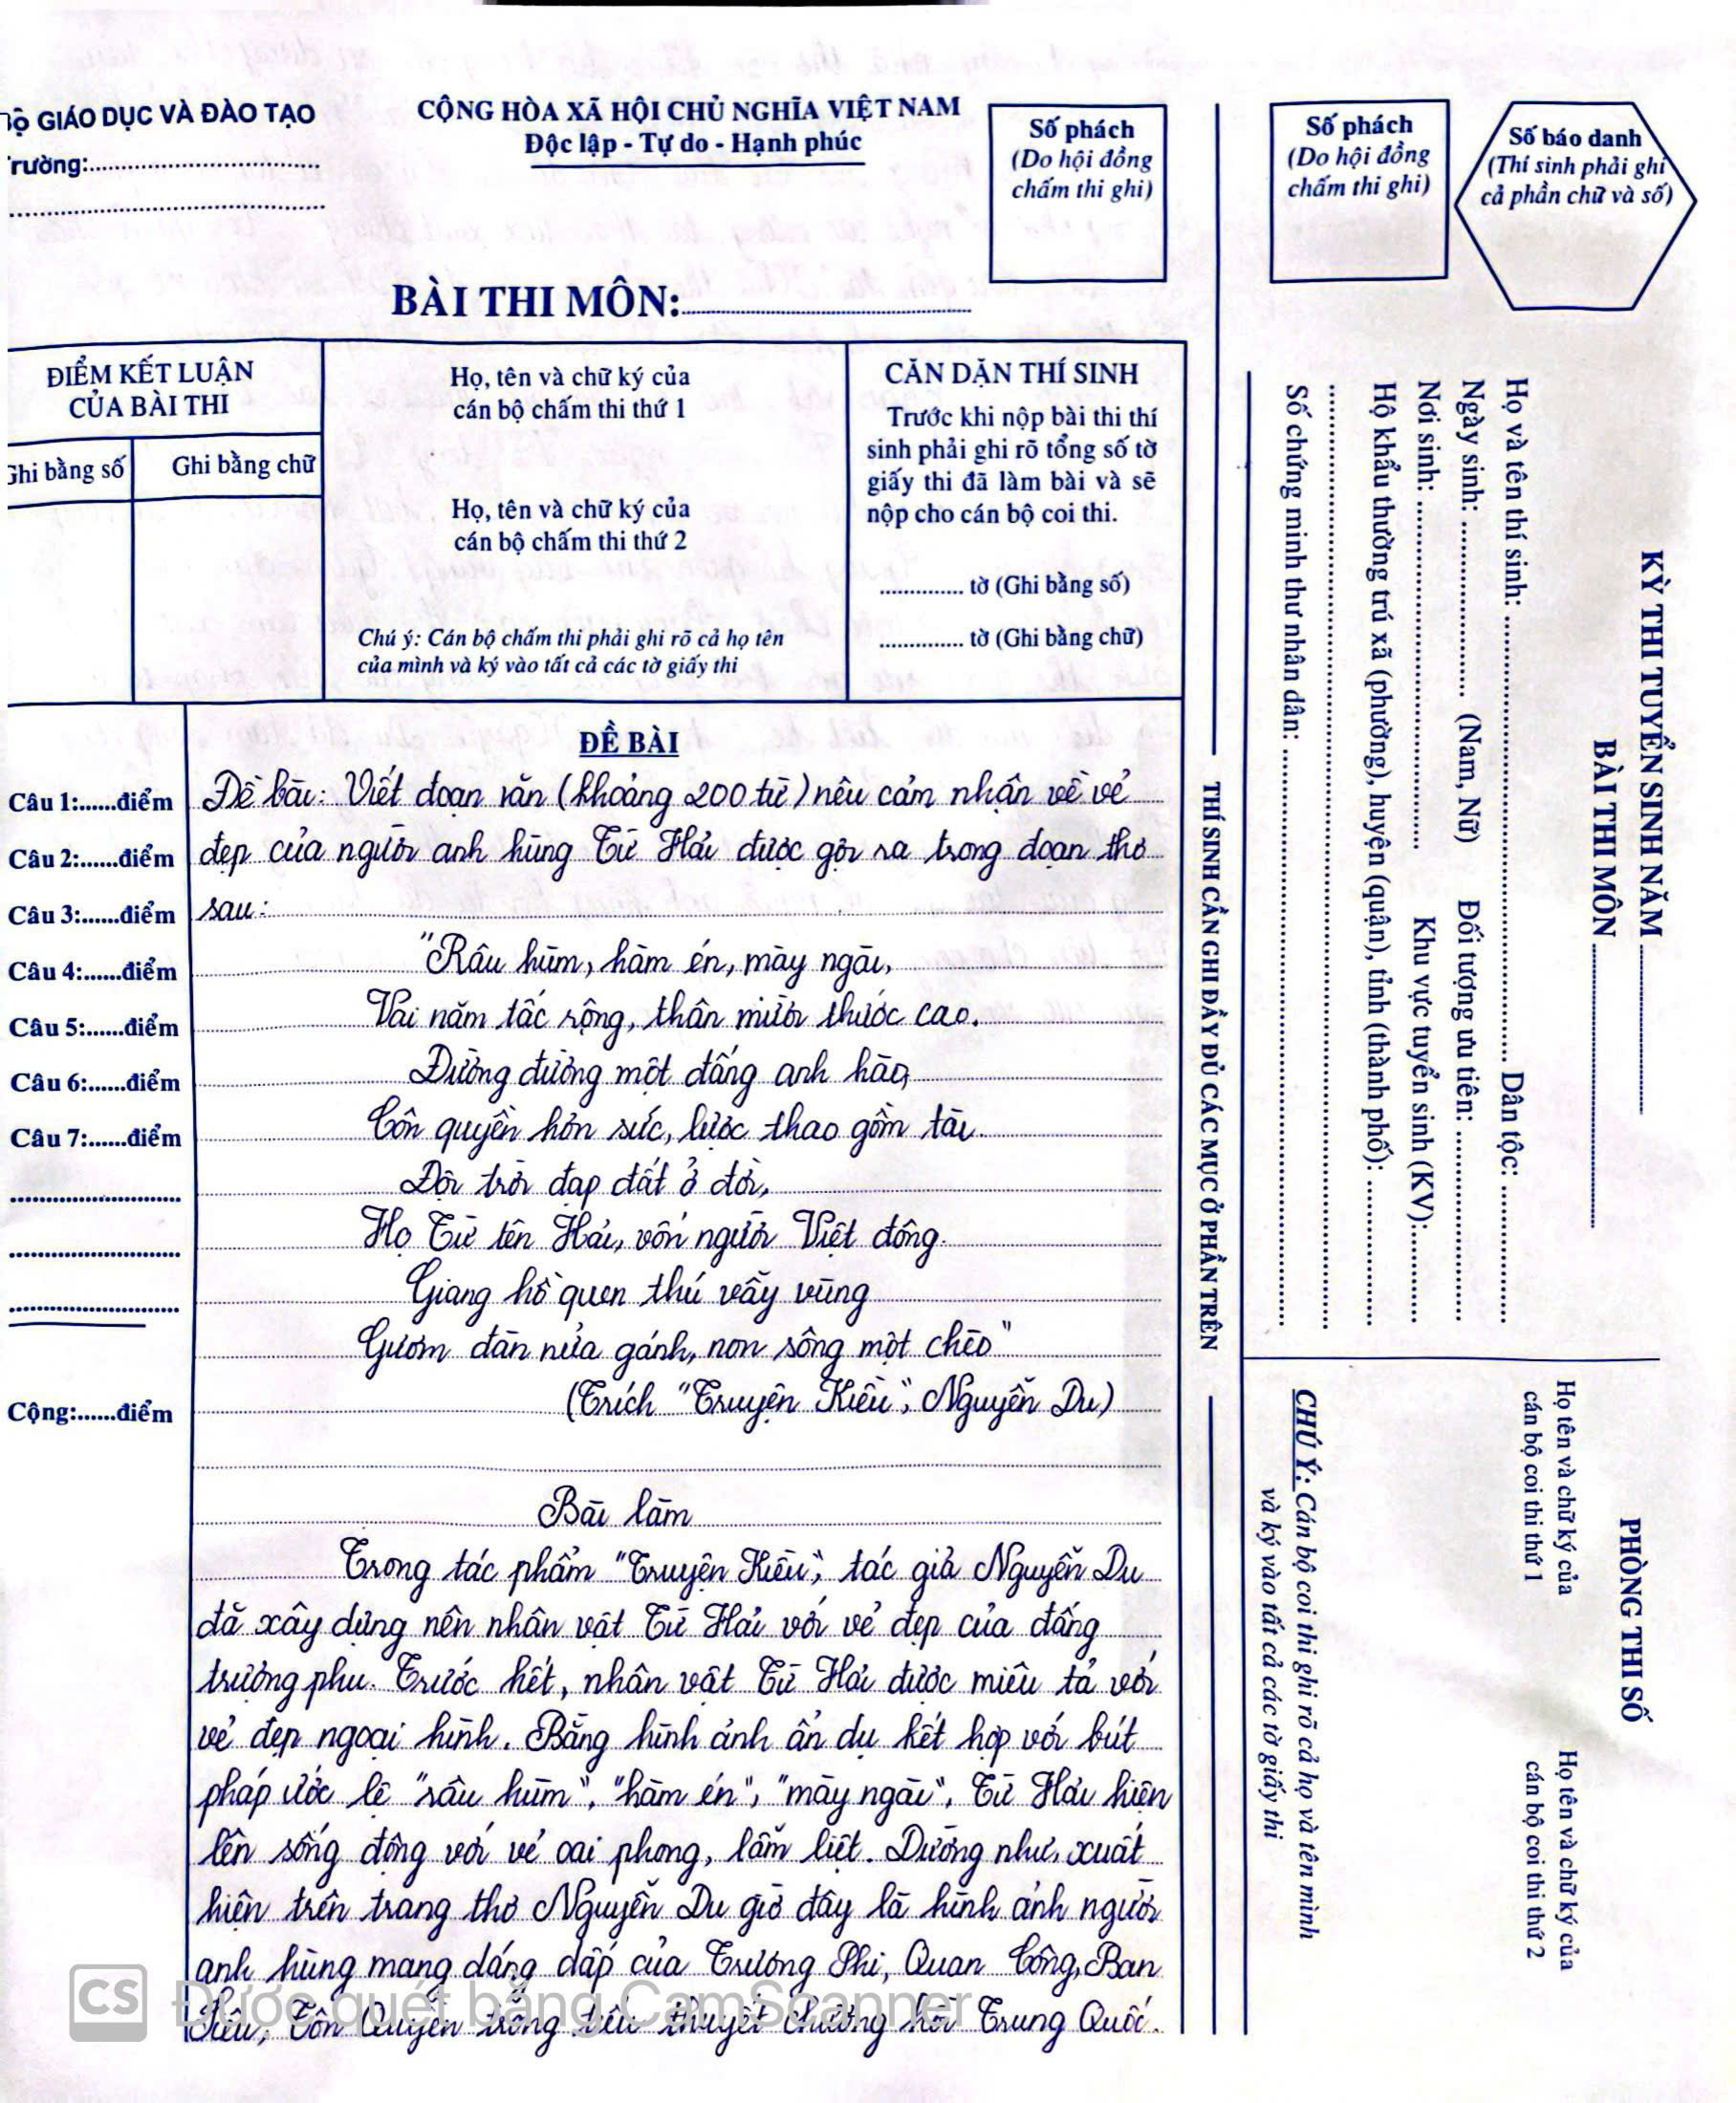 BỘ GIÁO DỤC VÀ ĐÀO TẠO
Trường:
CỘNG HÒA XÃ HỘI CHỦ NGHĨA VIỆT NAM
Độc lập - Tự do - Hạnh phúc
BÀI THI MÔN:
Số phách
(Do hội đồng
chấm thi ghi)
Số phách
(Do hội đồng
chấm thi ghi)
Số báo danh
(Thí sinh phải ghi
cả phần chữ và số)
ĐIỂM KẾT LUẬN
CỦA BÀI THI
Ghi bằng số
Ghi bằng chữ
Họ, tên và chữ ký của
cán bộ chấm thi thứ 1
Họ, tên và chữ ký của
cán bộ chấm thi thứ 2
Chú ý: Cán bộ chấm thi phải ghi rõ cả họ tên
của mình và ký vào tất cả các tờ giấy thi
CĂN DẶN THÍ SINH
Trước khi nộp bài thi thí
sinh phải ghi rõ tổng số tờ
giấy thi đã làm bài và sẽ
nộp cho cán bộ coi thi.
.............. tờ (Ghi bằng số)
.............. tờ (Ghi bằng chữ)
Câu 1:......điểm
Câu 2:......điểm
Câu 3:......điểm
Câu 4:......điểm
Câu 5:......điểm
Câu 6:......điểm
Câu 7:......điểm
Cộng:......điểm
ĐỀ BÀI
Đề bài: Viết đoạn văn (khoảng 200 từ) nêu cảm nhận về vẻ
đẹp của người anh hùng Từ Hải được gợi ra trong đoạn thơ
sau:
"Râu hùm, hàm én, mày ngài,
Vai năm tấc rộng, thân mười thước cao.
Đường đường một đấng anh hào,
Côn quyền hơn sức, lược thao gồm tài.
Đội trời đạp đất ở đời,
Họ Từ tên Hải, vốn người Việt đông.
Giang hồ quen thú vẫy vùng
Gươm đàn nửa gánh, non sông một chèo"
(Trích "Truyện Kiều", Nguyễn Du)
Bài làm
Trong tác phẩm "Truyện Kiều", tác giả Nguyễn Du
đã xây dựng nên nhân vật Từ Hải với vẻ đẹp của đấng
trượng phu. Trước hết, nhân vật Từ Hải được miêu tả với
vẻ đẹp ngoại hình. Bằng hình ảnh ẩn dụ kết hợp với bút
pháp ước lệ "râu hùm", "hàm én", "mày ngài", Từ Hải hiện
lên sống động với vẻ oai phong, lẫm liệt. Dường như, xuất
hiện trên trang thơ Nguyễn Du giờ đây là hình ảnh người
anh hùng mang dáng dấp của Trương Phi, Quan Công, Ban
Siêu, Tôn Quyền trong tiểu thuyết chương hồi Trung Quốc.
THÍ SINH CẦN GHI ĐẦY ĐỦ CÁC MỤC Ở PHẦN TRÊN
KỲ THI TUYỂN SINH NĂM
BÀI THI MÔN
Họ và tên thí sinh: Dân tộc:
Ngày sinh: (Nam, Nữ) Đối tượng ưu tiên:
Nơi sinh: Khu vực tuyển sinh (KV):
Hộ khẩu thường trú xã (phường), huyện (quận), tỉnh (thành phố):
Số chứng minh thư nhân dân:
PHÒNG THI SỐ
Họ tên và chữ ký của
cán bộ coi thi thứ 1
Họ tên và chữ ký của
cán bộ coi thi thứ 2
CHÚ Ý: Cán bộ coi thi ghi rõ cả họ và tên mình
và ký vào tất cả các tờ giấy thi
CS Được quét bằng CamScanner